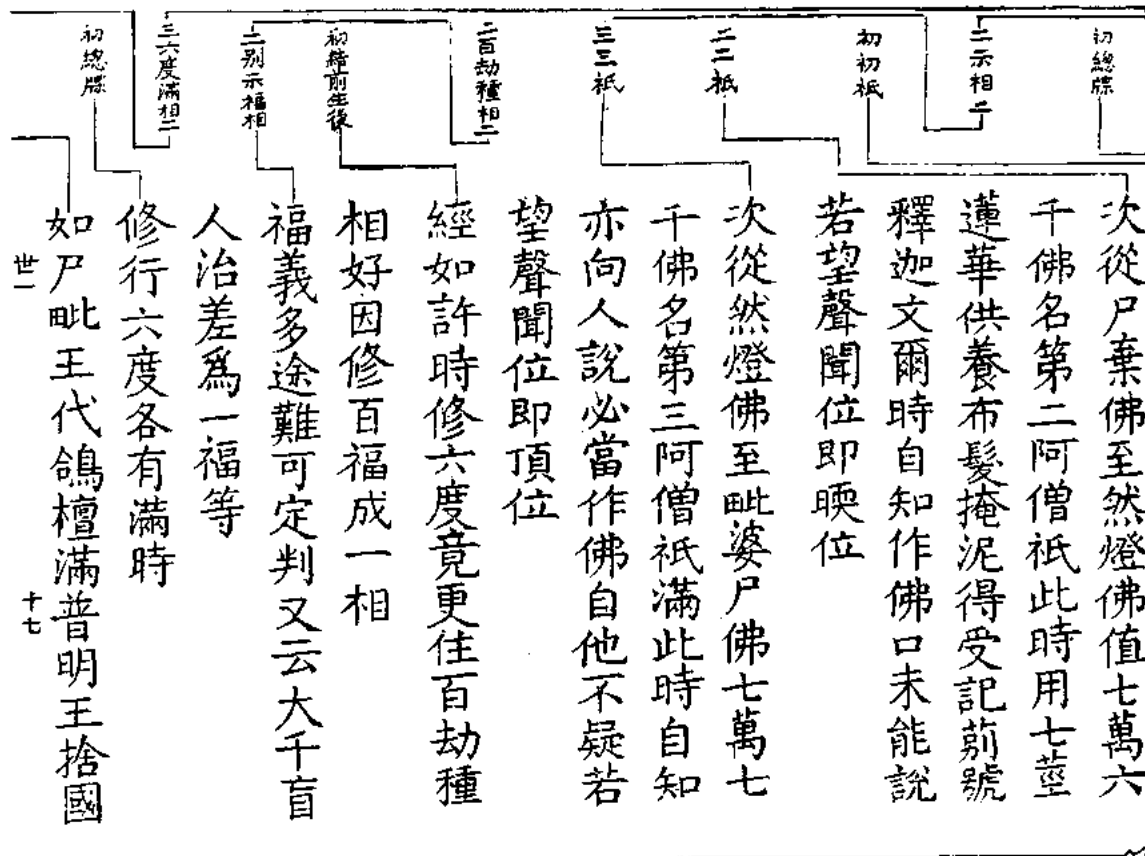 初總牒
二示相二
初初祇
二二祇
三三祇
二百劫種相二
初結前生後
二別示福相
三六度滿相二
初總牒
次從尸棄佛至然燈佛值七萬六
千佛名第二阿僧祇此時用七莖
蓮華供養布髮掩泥得受記莂號
釋迦文爾時自知作佛口未能說
若望聲聞位即暝位
次從然燈佛至毗婆尸佛七萬七
千佛名第三阿僧祇滿此時自知
亦向人說必當作佛自他不疑若
望聲聞位即頂位
經如許時修六度竟更住百劫種
相好因修百福成一相
福義多途難可定判又云大千盲
人治差為一福等
修行六度各有滿時
如尸毗王代鴿檀滿普明王捨國
世一
十七